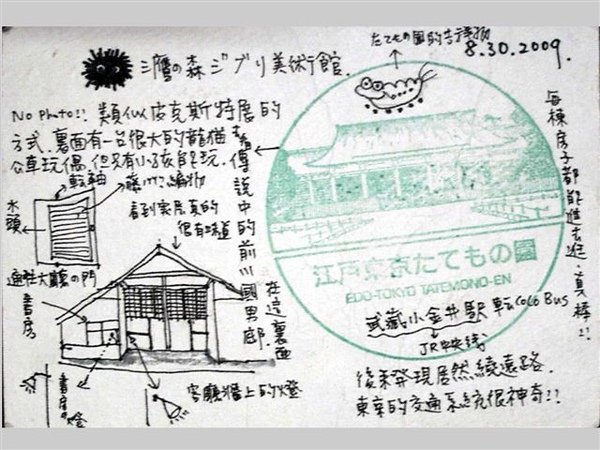 三鷹の森ジブリ美術館.
No Photo!! 類似皮克斯特展的
方式.裏面有一台很大的龍貓
公車玩偶,但只有小孩能玩.
轉軸
木頭
看到實居真的
很有味道
通往大廳の門
書房
書房の燈
客廳牆上的燈
傳說中的前川國男邸.
在這裏面
たてもの園的吉祥物
8.30.2009.
每棟房子都能進去逛.真棒!!
江戸東京たてもの園
EDO-TOKYO TATEMONO-EN
武藏小金井駅 転 CoCo Bus
JR中央線
後來發現居然繞遠路.
東京的交通系統很神奇!!